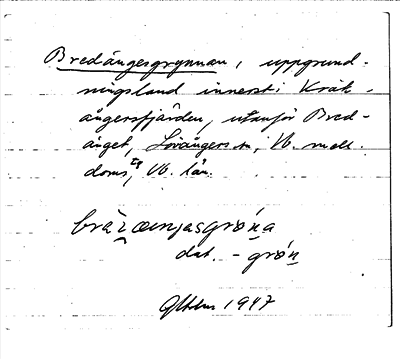 Bredängesgrynnan, uppgrund-
ningsland innerst i Kråk-
ångersfjärden, utanför Bred-
änget, Lövångers sn, Vb. mell.
doms, Vb. län.
bräz œnjasgrøna
dat. - grøn
1947